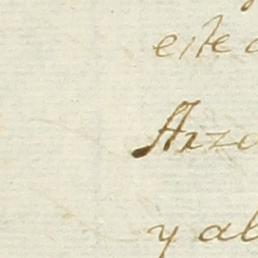 este
Arzo
y ab